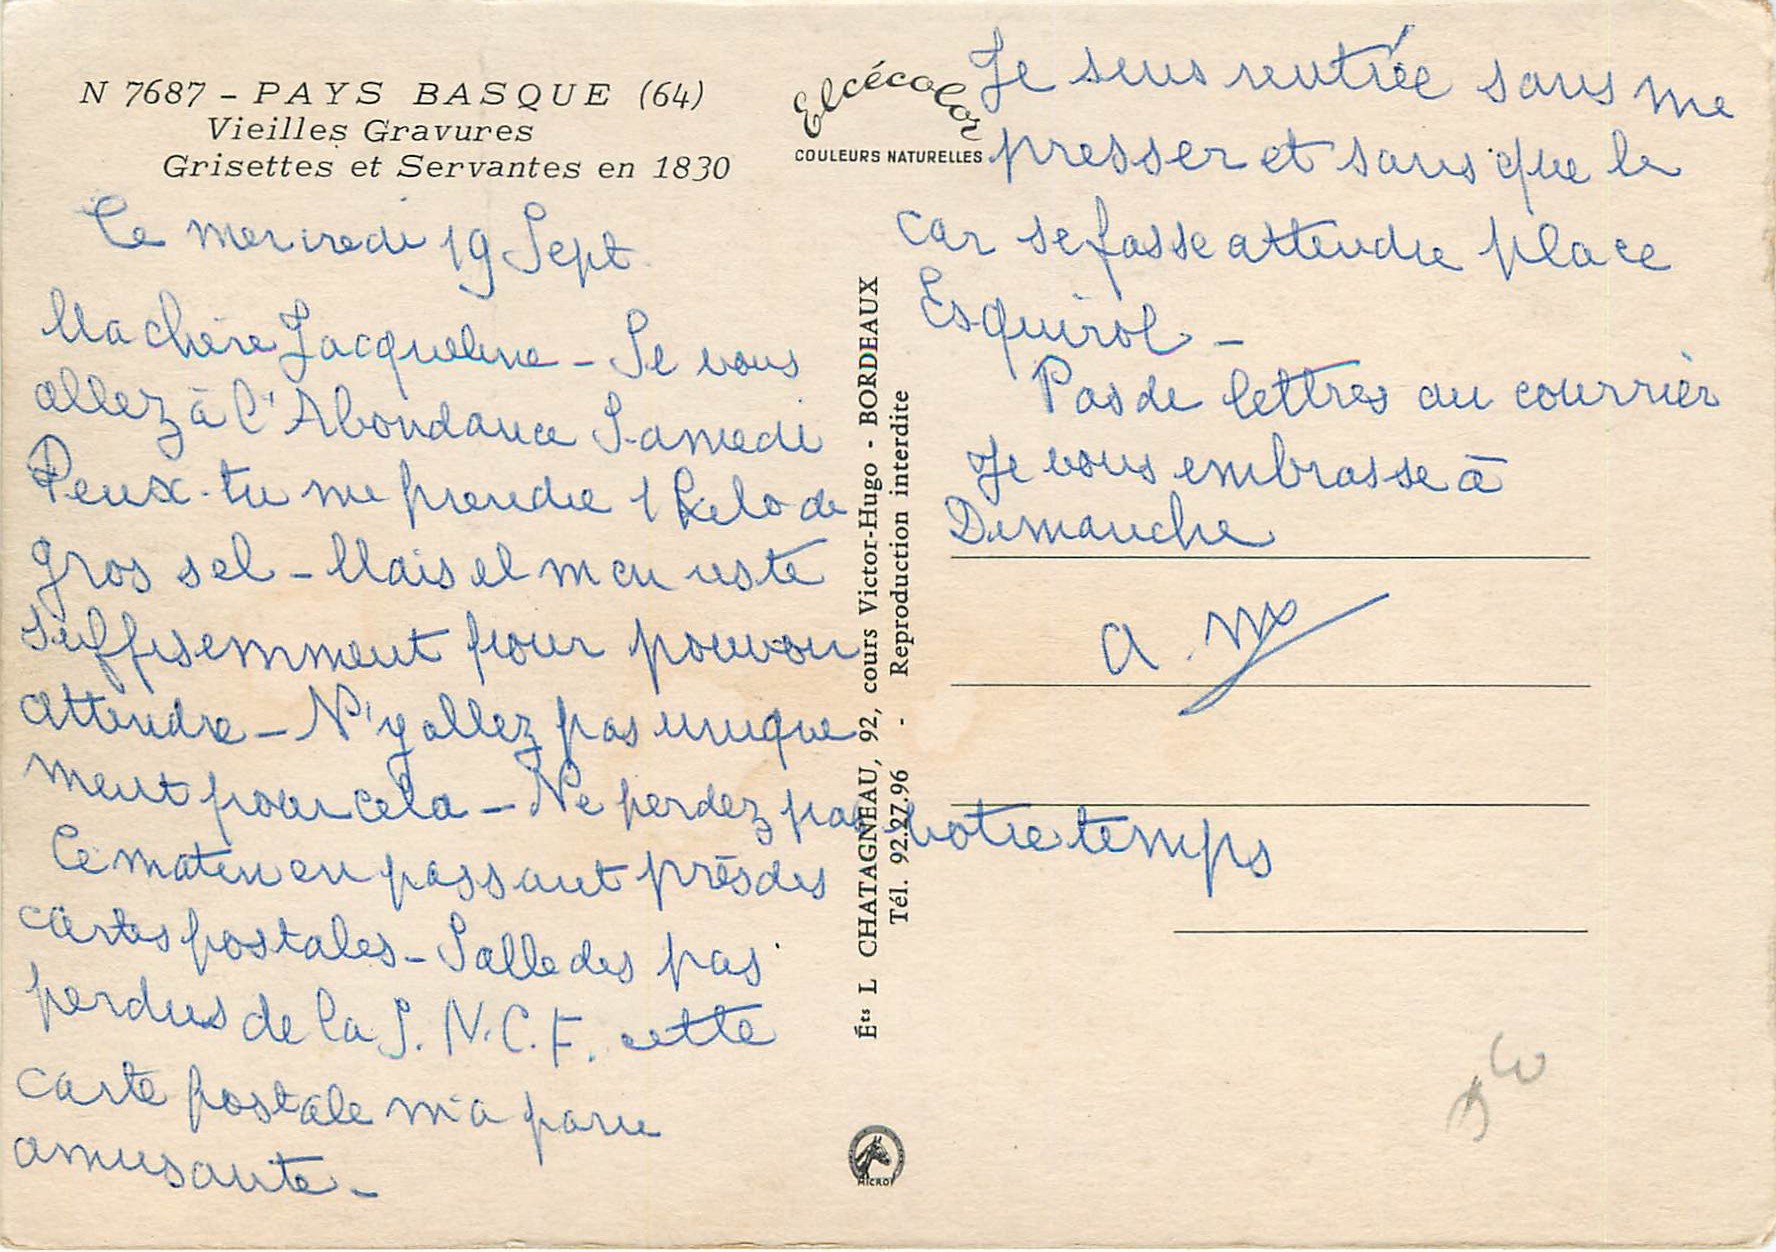 N 7687 - PAYS BASQUE (64)
Vieilles Gravures
Grisettes et Servantes en 1830
Elcécolor
COULEURS NATURELLES
Ce mercredi 19 Sept.
Ma chère Jacqueline - Si vous
allez à l'Abondance Samedi
Peux-tu me prendre 1 kilo de
gros sel - Mais il m'en reste
suffisemment pour pouvoir
attendre - N'y allez pas unique
ment pour cela - Ne perdez pas votre temps
Ce matin en passant près des
cartes postales - Salle des pas
perdus de la S.N.C.F. cette
carte postale m'a paru
amusante -
Je suis rentrée sans me
presser et sans que le
car se fasse attendre place
Esquirol -
Pas de lettres au courrier
Je vous embrasse à
Dimanche
Éts L CHATAGNEAU, 92, cours Victor-Hugo - BORDEAUX
Tél. 92.27.96 - Reproduction interdite
MICRO